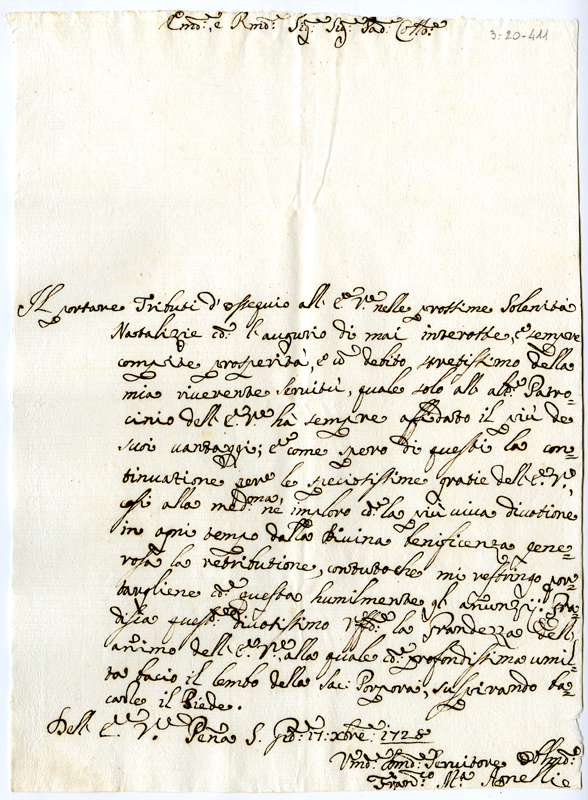 Em.º e Rmo: Sig.r Sig.r Pad.e Coll.mo
3-20-411
Il portare Tributi d'ossequio all' E.V. nelle prossime Solenità
Natalizie co l'augurio di mai interotte, e sempre
compite prosperità, è un debito strettissimo della
mia riverente servitù, quale solo all' alto Patro=
cinio dell' E.V. hà sempre affidato il più de
suoi vantaggi; e come spero di questi la con=
tinuatione per le speciosissime gratie dell' E.V.,
così alla med.ma ne imploro co la più viva divotione
in ogni tempo dalla Divina benificenza gene=
rosa la retributione, contutoche mi restringo por=
targliene co questa humilmente gl' anunzij. Gra=
disca questo divotissimo la Grandezza dell'
animo dell' E.V., alla quale co profondissima umil=
tà bacio il lembo della Sac: Porpora, suspirando ba=
carle il Piede.
Dell' E.V. Pena S. Gio: 17: Xbre: 1728
Vmo: Servitore
Fran.co M.a Agnelli